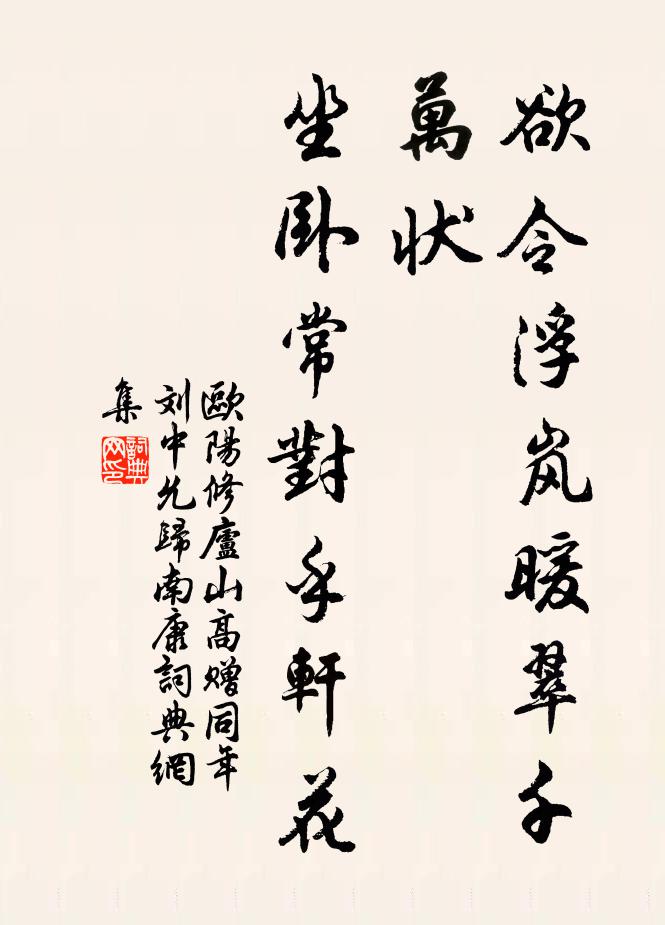 欲令浮岚暖翠千
萬状
坐卧常對乎軒花
歐陽修廬山高贈同年
刘中允歸南康詞典網
集
詞典
网印